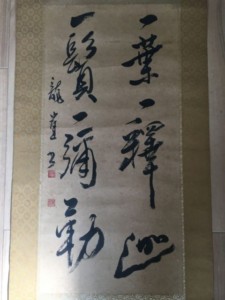 一葉一釋迦
一鬚一彌勒
龍